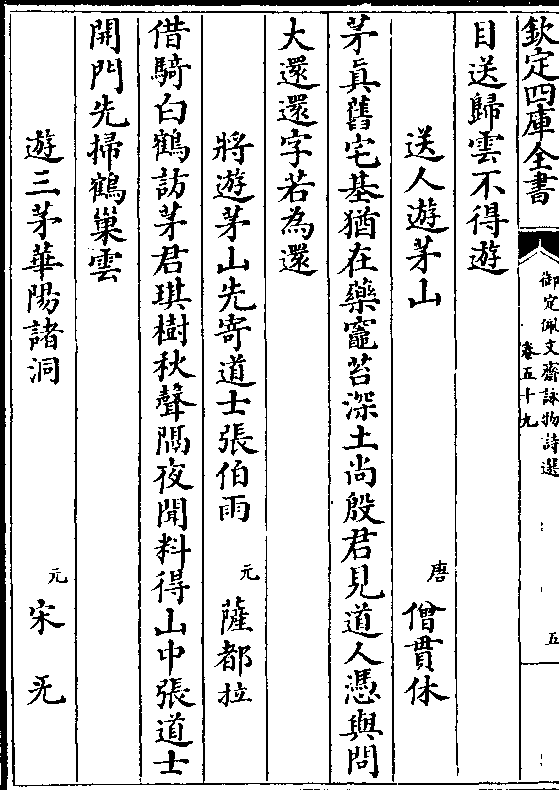 欽定四庫全書
御定佩文齋詠物詩選
卷五十九
五
目送歸雲不得遊
送人遊茅山
唐
僧貫休
茅真舊宅基猶在藥竈苔深土尚殷君見道人憑與問
大還還字若為還
將遊茅山先寄道士張伯雨
元
薩都拉
借騎白鶴訪茅君琪樹秋聲隔夜聞料得山中張道士
開門先掃鶴巢雲
遊三茅華陽諸洞
元
宋旡